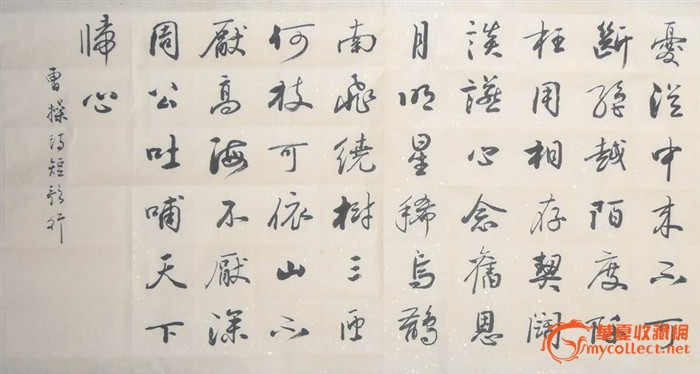 憂從中來不可
斷絕越陌度阡
枉用相存契闊
談讌心念舊恩
月明星稀烏鵲
南飛繞樹三匝
何枝可依山不
厭高海不厭深
周公吐哺天下
歸心
曹操詩短歌行
華夏收藏網
mycollect.net